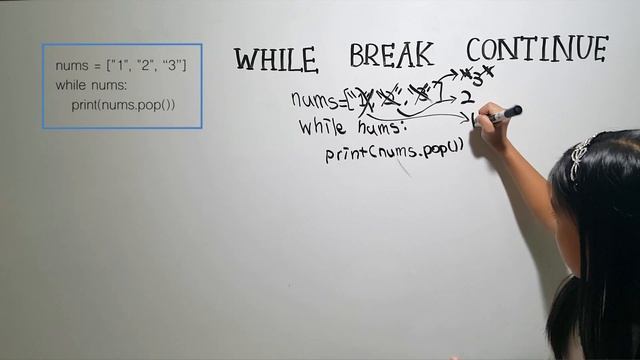 WHILE BREAK CONTINUE
nums = ["1", "2", "3"]
while nums:
print(nums.pop())
nums=["1", "2", "3"]
while nums:
print(nums.pop())
"3"
2
1